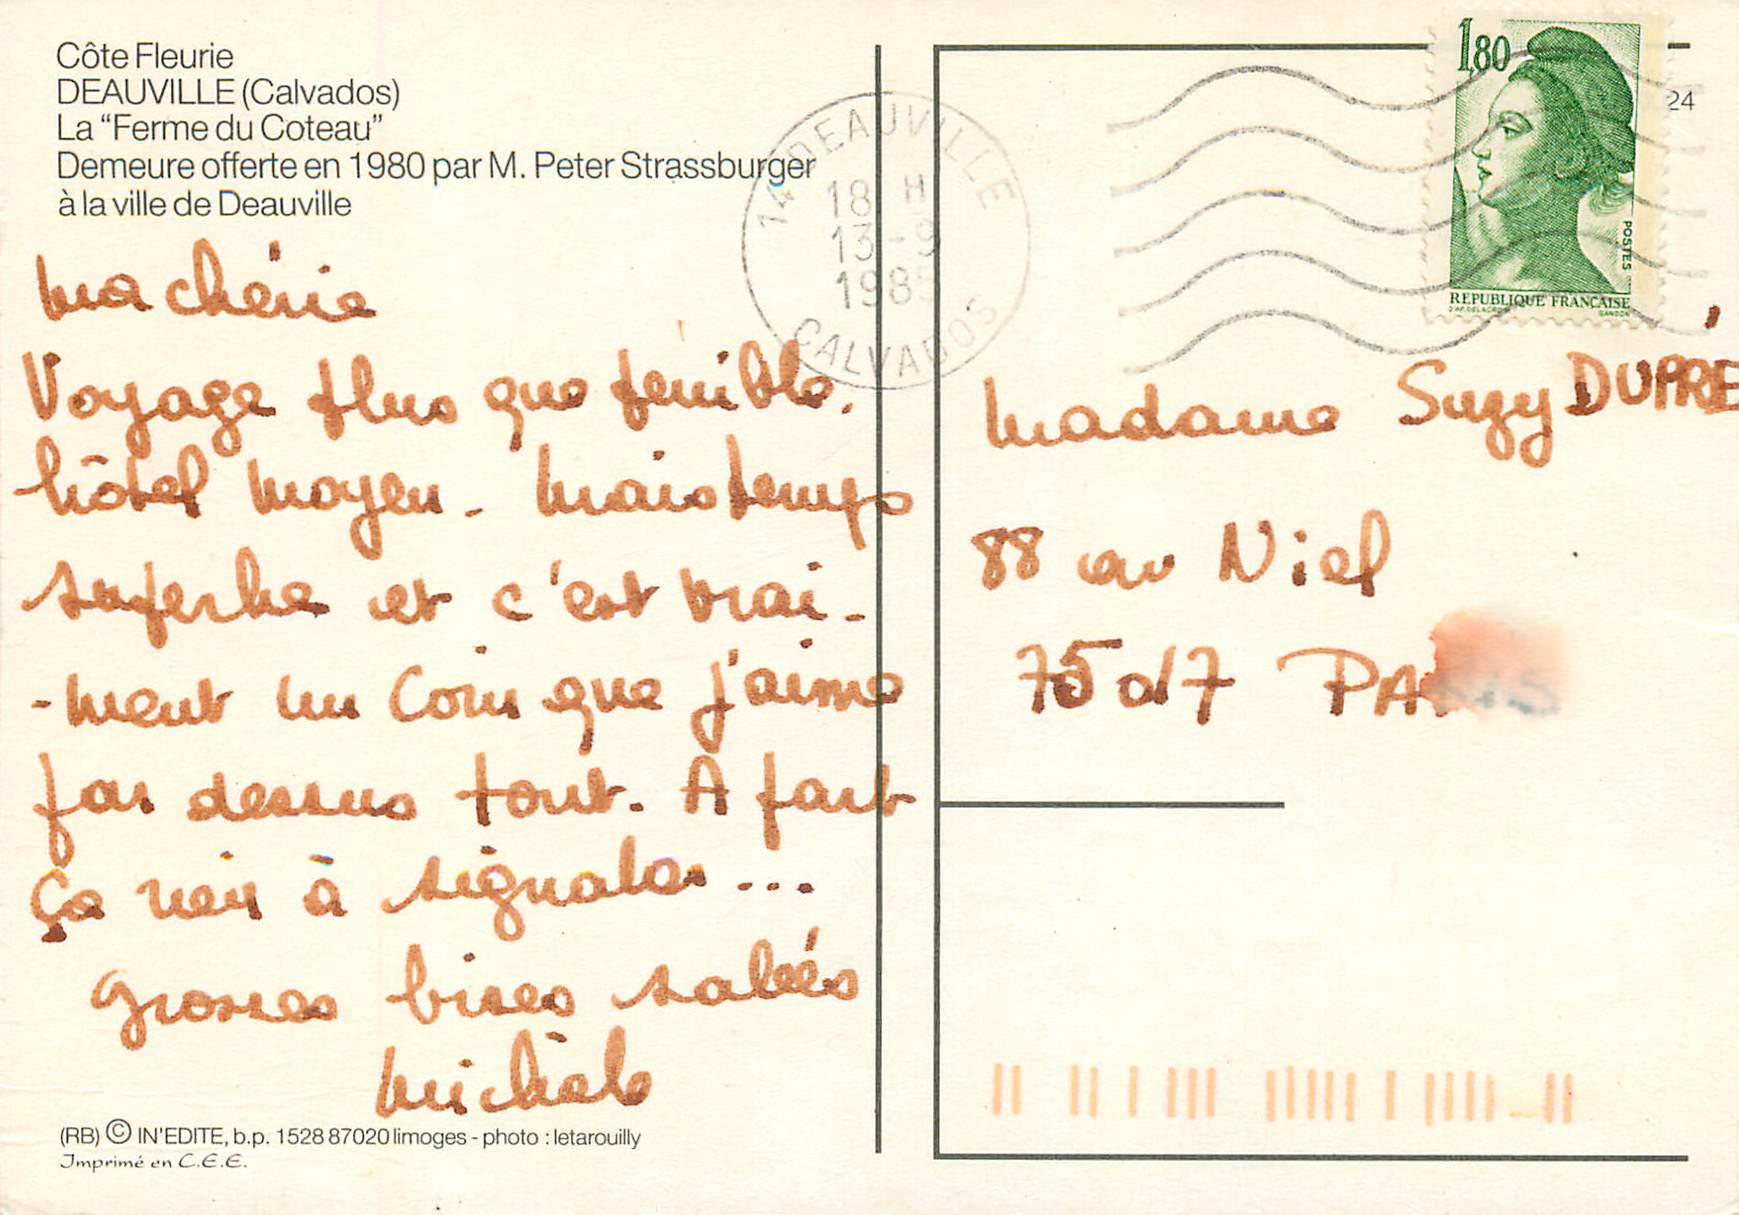 Côte Fleurie
DEAUVILLE (Calvados)
La “Ferme du Coteau”
Demeure offerte en 1980 par M. Peter Strassburger
à la ville de Deauville
Ma chérie
Voyage plus que pénible.
hôtel moyen - Mais temps
superbe et c'est vrai-
-ment un coin que j'aime
par dessus tout. A part
ça rien à signaler ...
grosses bises salées
Michèle
(RB) © IN'EDITE, b.p. 1528 87020 limoges - photo : letarouilly
Imprimé en C.E.E.
14 DEAUVILLE
18 H
13-9
198
CALVADOS
1,80
POSTES
REPUBLIQUE FRANÇAISE
D'AP. DELACROIX
GANDON
24
Madame Suzy DUPRE
88 av Niel
75017 PARIS